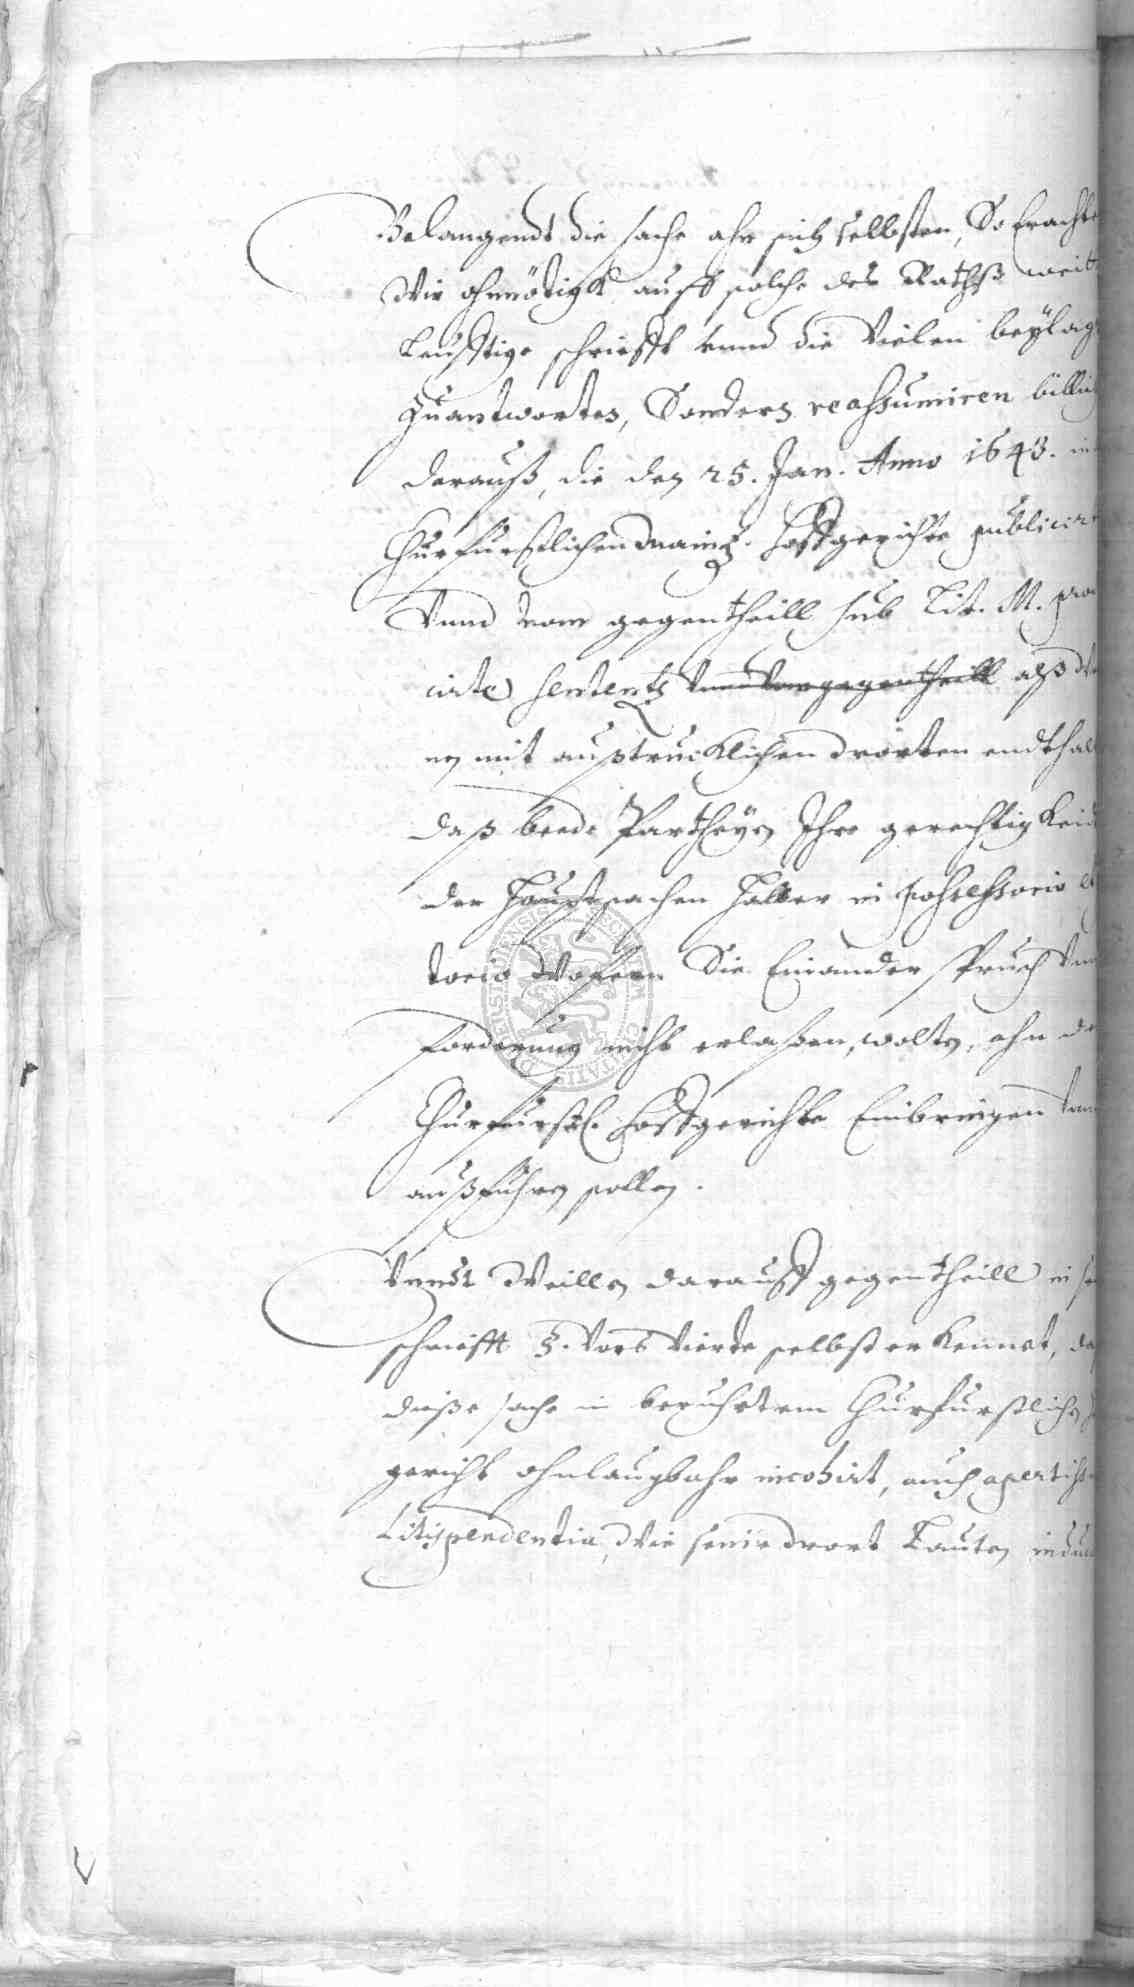 Belangendt die sache ahn sich selbsten, So Eracht
Wir ohnnötigk auff solche des Raths weit
leufftige schriefft vnnd die vielen beylag
Zuantworten, Sondern reassumiren billig
darauß, die den 25. Jan. Anno 1643. in
Churfürstlichen Maintz. Hoffgericht publicir
Vnnd vom gegentheill sub Lit. M. pro
cirte sententz vnnd vom gegentheill alß
en mit außtrucklichen worten endthal
daß beede Partheyen Ihre gerechtigkeid
der Hauptsachen halber in possessorio
torio Wofern Sie Einander spruch vn
forderung nicht erlaßen, wolten, ahn de
Churfürstl. Hoffgericht Einbringen vnn
außführen sollen.
Vnndt Weillen darauff gegentheill in
schriefft §. vors vierte selbst erkennet, daß
dieße sache in berührtem Churfürstlichen
gericht ohnlaugbahr incohirt, auch apertiss
Litispendentia, Wie seine wort lauten indu